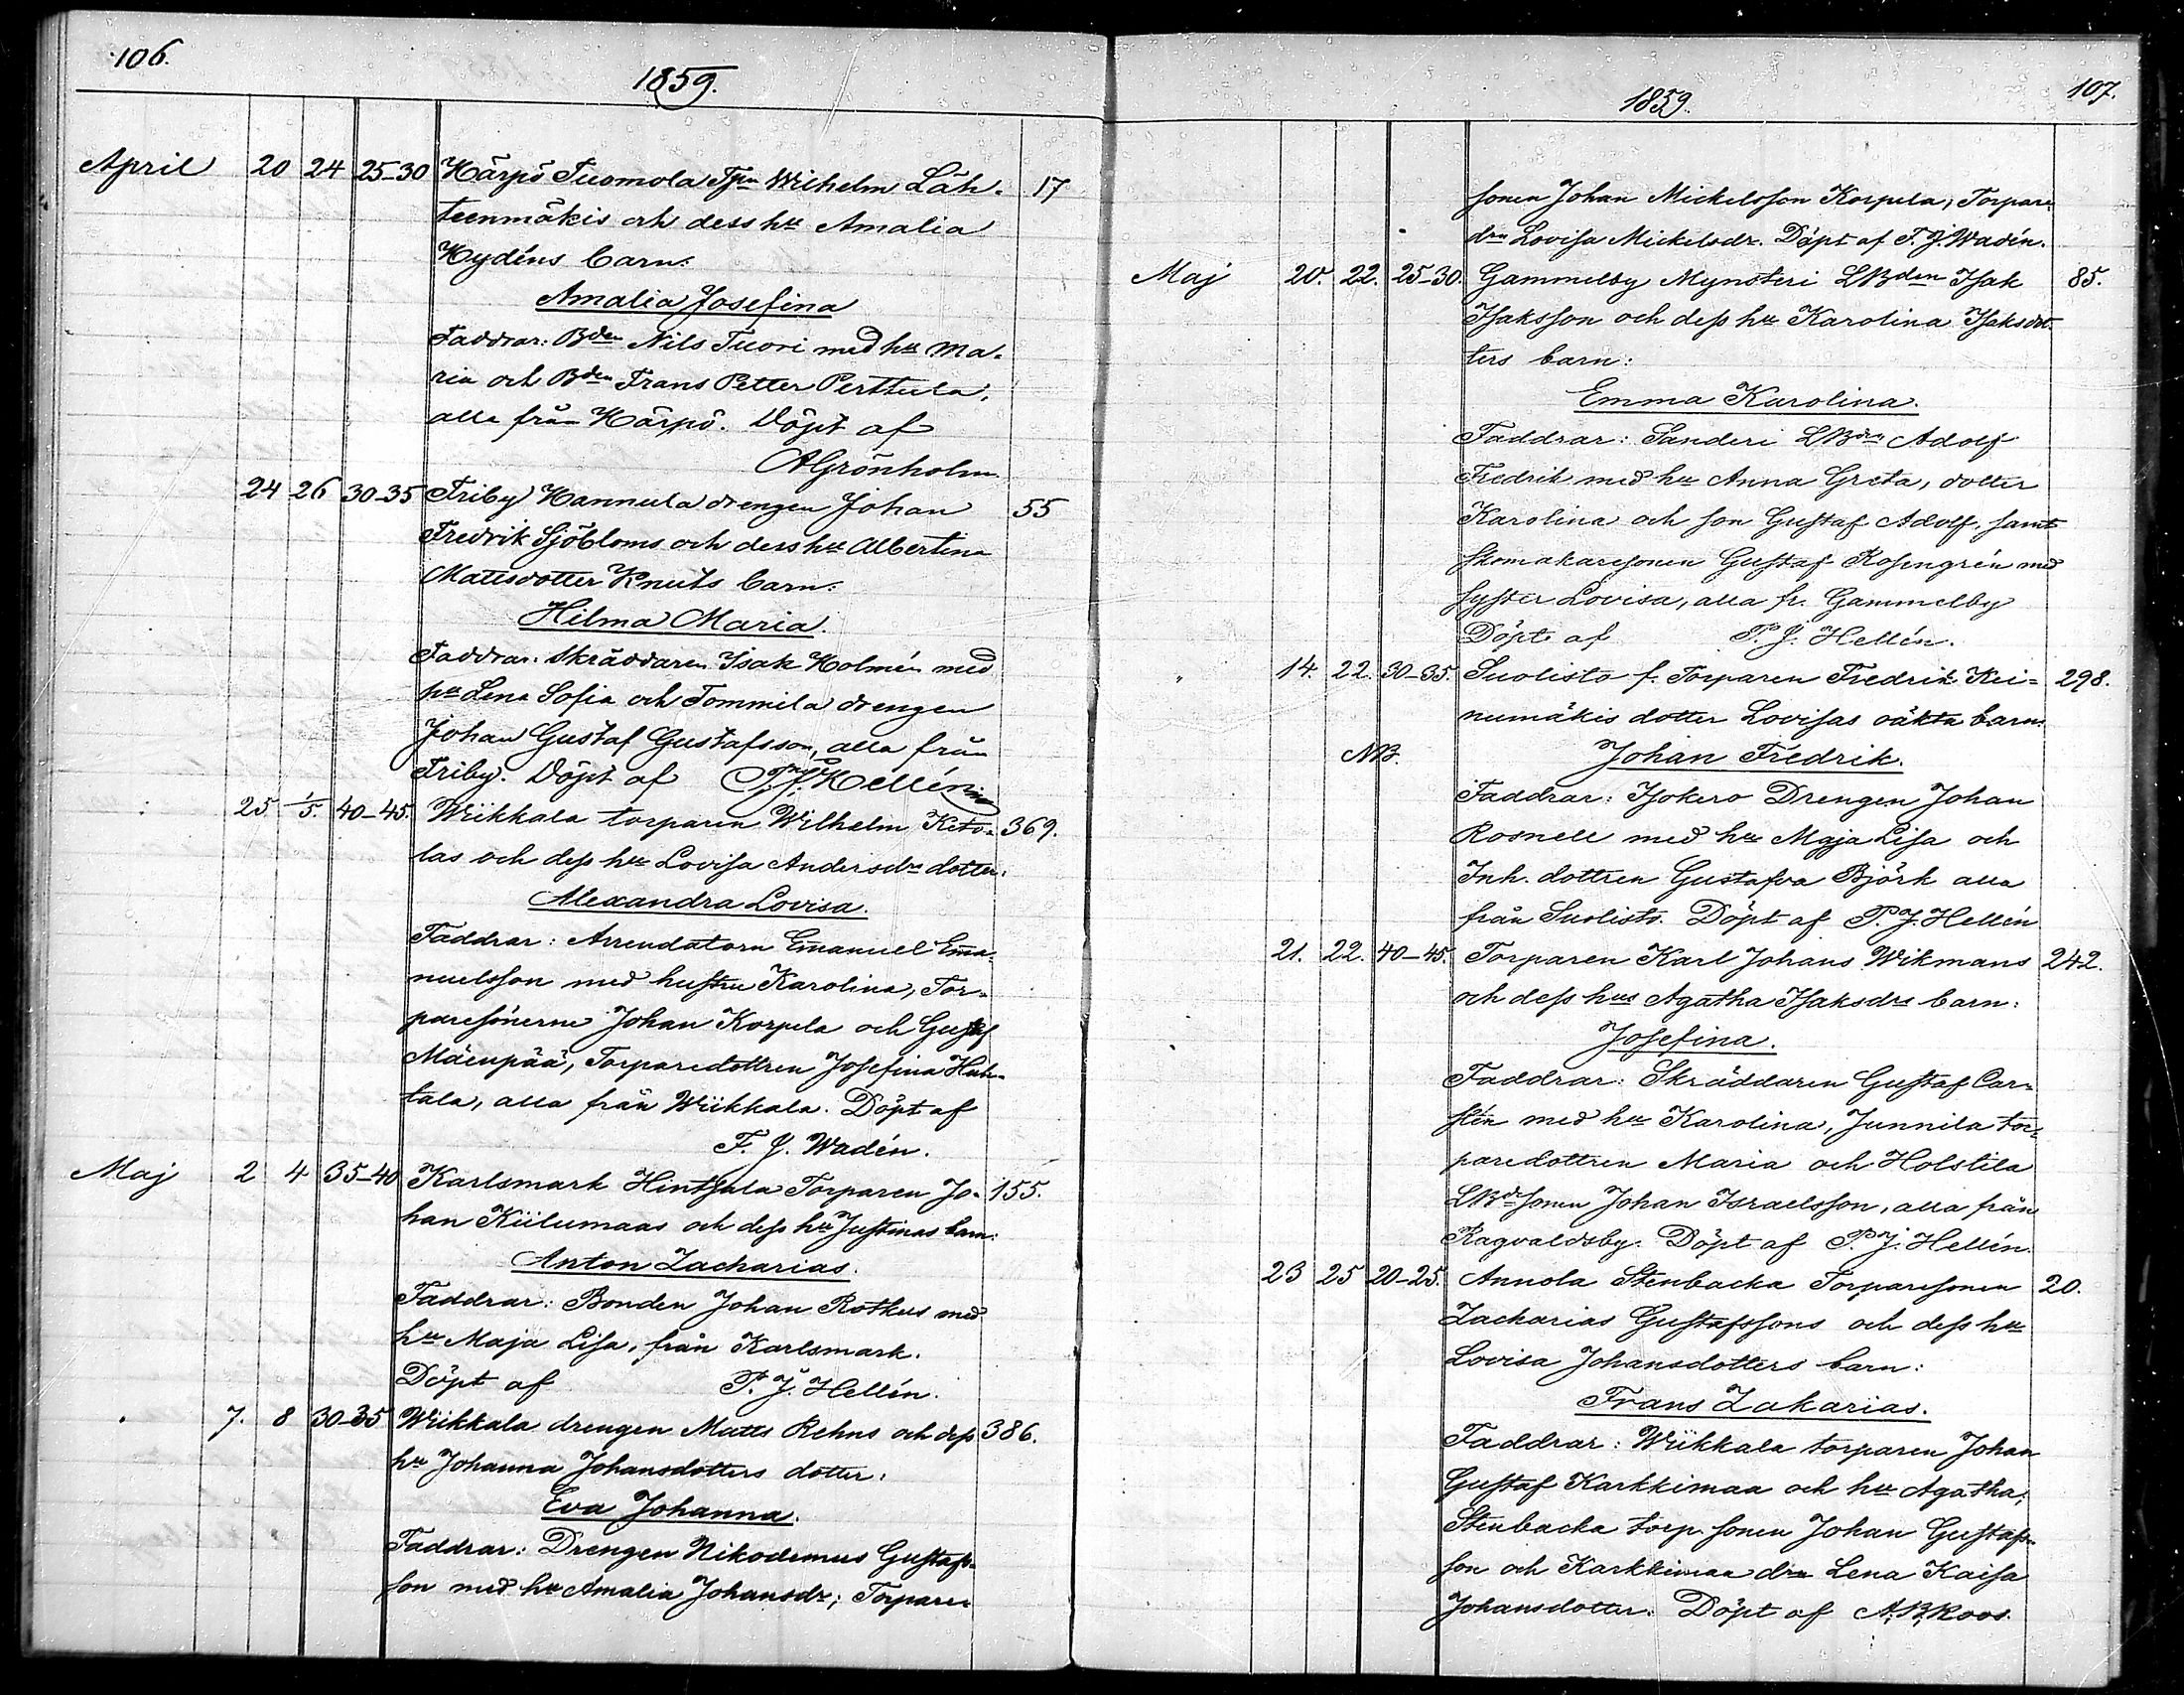 106.
1859.
April 20 24 25-30 Härpö Tuomola Tpn Wilhelm Läh- 17
teenmäkis och dess hu Amalia
Hydéns barn:
Amalia Josefina
Faddrar: Bden Nils Tuori med hu Ma-
ria och Bden Frans Petter Perttula,
alla från Härpö. Döpt af
AGrönholm.
24 26 30-35 Friby Hannula drengen Johan 55
Fredrik Sjöbloms och dess hu Albertina
Mattsdotter Knuts barn:
Hilma Maria.
Faddrar: Skräddaren Isak Holmén med
hu Lena Sofia och Tommila drengen
Johan Gustaf Gustafsson, alla från
Friby. Döpt af P.J. Hellén
25. 1/5. 40-45. Wiikkala torparen Wilhelm Keto- 369.
las och dess hu Lovisa Andersdrs dotter:
Alexandra Lovisa.
Faddrar: Arrendatorn Emanuel Ema-
nuelsson med hustru Karolina, Tor-
paresönerne Johan Korpela och Gustaf
Mäenpää, Torparedottren Josefina Huh-
tala, alla från Wiikkala. Döpt af
F. J. Wadén.
Maj 2 4 35-40 Karlsmark Hintsala Torparen Jo- 155.
han Kiilumaas och dess hu Justinas barn:
Anton Zacharias.
Faddrar: Bonden Johan Rothus med
hu Maja Lisa, från Karlsmark.
Döpt af P. J. Hellén.
7. 8 30-35 Wiikkala drengen Matts Rehns och dess 386.
hu Johanna Johansdotters dotter:
Eva Johanna.
Faddrar: Drengen Nikodemus Gustafs-
son med hu Amalia Johansdr, Torpare-
107.
1859.
sonen Johan Mickelsson Korpela, Torpare
drn Lovisa Mickelsdr. Döpt af F. J. Wadén.
Maj 20. 22. 25-30. Gammelby Mynsteri LBden Isak 85.
Isaksson och dess hu Karolina Isaksdot-
ters barn:
Emma Karolina.
Faddrar: Sanderi LBdn Adolf
Fredrik med hu Anna Greta, dotter
Karolina och son Gustaf Adolf, samt
Skomakaresonen Gustaf Rosengrén med
syster Lovisa, alla fr. Gammelby
Döpt af P. J. Hellén.
" 14. 22. 30-35. Suolisto f. Torparen Fredrik Kei- 298.
numäkis dotter Lovisas oäkta barn:
NB. Johan Fredrik.
Faddrar: Isokero Drengen Johan
Rosnell med hu Maja Lisa och
Inh. dottren Gustafva Björk alla
från Suolisto. Döpt af P. J. Hellén
21. 22. 40-45. Torparen Karl Johans Wikmans 242.
och dess hus Agatha Isaksdrs barn:
Josefina.
Faddrar: Skräddaren Gustaf Car-
stén med hu Karolina, Junnila tor-
paredottren Maria och Holstila
LBdesonen Johan Israelsson, alla från
Ragvaldsby. Döpt af P. J. Hellén.
23 25 20-25. Annola Stenbacka Torparesonen 20.
Zacharias Gustafssons och dess hu
Lovisa Johansdotters barn:
Frans Zakarias.
Faddrar: Wiikkala torparen Johan
Gustaf Karkkimaa och hu Agatha,
Stenbacka torp. sonen Johan Gustafs-
son och Karkkimaa drn Lena Kaisa
Johansdotter. Döpt af A. B. Roos.